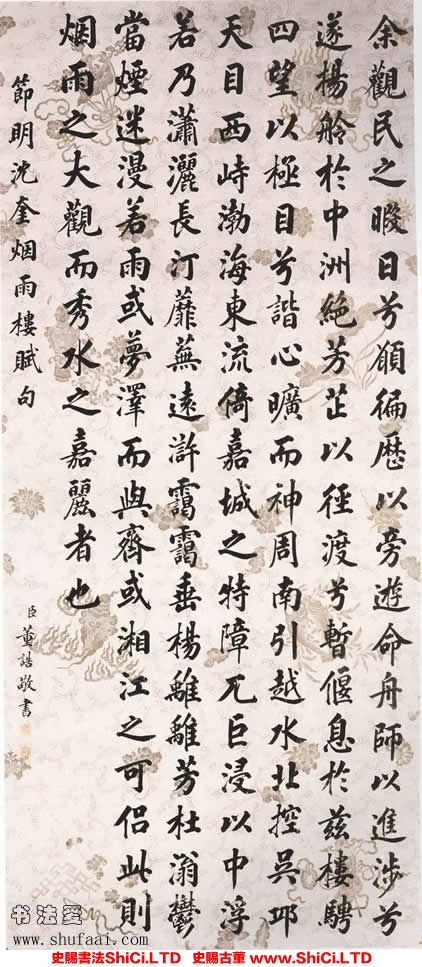 余觀民之暇日兮願徧歷以旁遊命舟師以進涉兮
遂楊舲於中洲絶芳芷以徑渡兮暫偃息於兹樓騁
四望以極目兮諧心曠而神周南引越水北控吳邛
天目西峙渤海東流倚嘉城之特障兀巨浸以中浮
若乃瀟灑長汀蘼蕪遠滸靄靄垂楊離離芳杜滃鬱
當煙迷漫若雨或夢澤而與齊或湘江之可侣此則
烟雨之大觀而秀水之嘉麗者也
節明沈奎烟雨樓賦句
臣董誥敬書
书法爱
www.shufaai.com
史賜書法ShiCi.LTD 史賜古董 www.ShiCi.LTD